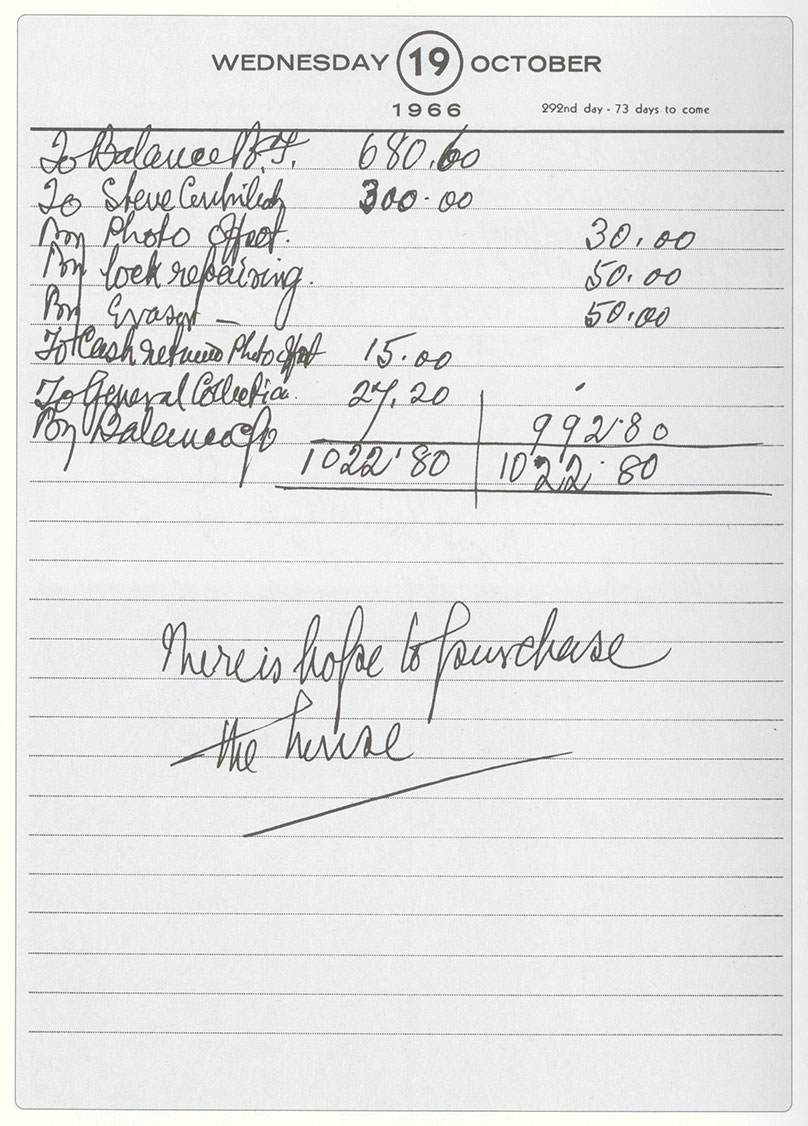 WEDNESDAY 19 OCTOBER
1966 292nd day - 73 days to come
To Balance B.F. 680.60
To Steve 300.00
By Photo Offset. 30.00
By lock repairing. 50.00
By Eraser — 50.00
To Cash return Photo offset 15.00
To General Collection. 27.20
By Balance c/o 992.80
1022.80 1022.80
There is hope to purchase
the house